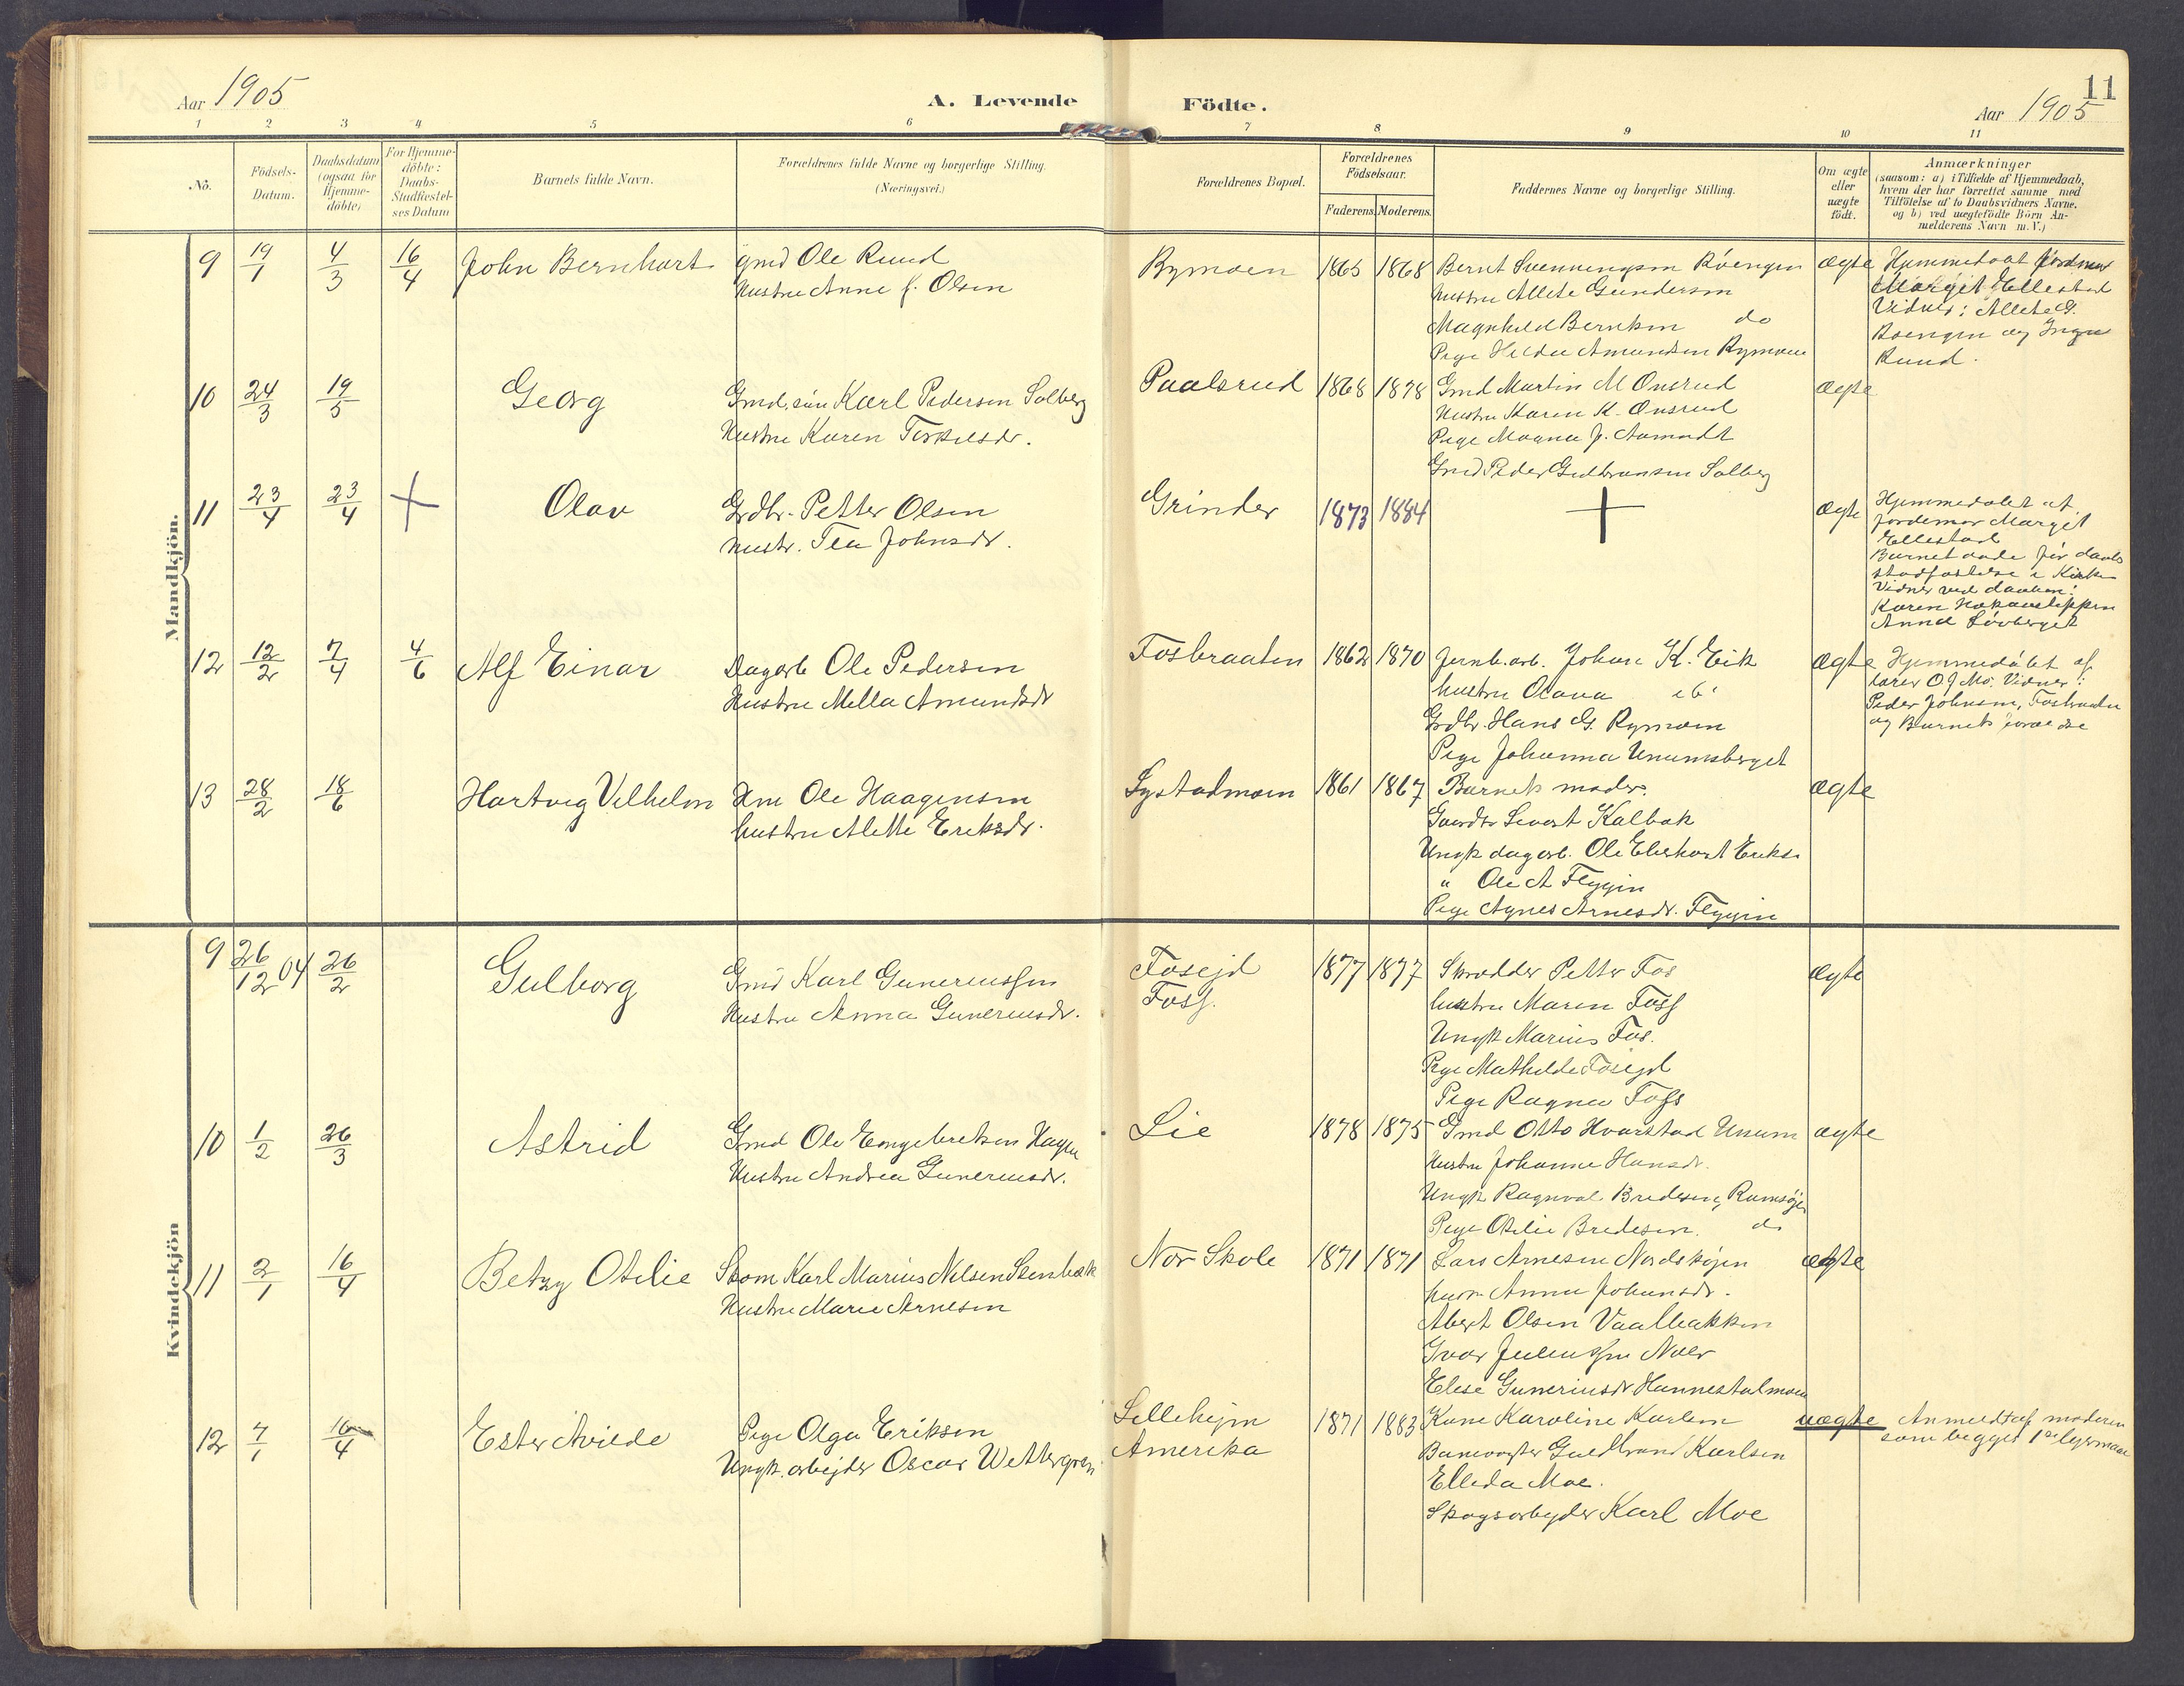 Aar 1905
A. Levende
Födte.
Aar 1905
11
1 2 3 4 5 6 7 8 9 10 11
No.
Födsels-
Datum.
Daabsdatum
(ogsaa for
Hjemme-
döbte)
For Hjemme-
döbte:
Daabs-
Stadfæstel-
ses Datum
Barnets fulde Navn.
Forældrenes fulde Navne og borgerlige Stilling.
(Næringsvei.)
Forældrenes Bopæl.
Forældrenes
Födselsaar.
Faderens. Moderens.
Faddernes Navne og borgerlige Stilling.
Om ægte
eller
uægte
födt.
Anmærkninger
(saasom: a) i Tilfælde af Hjemmedaab,
hvem der har forrettet samme med
Tilföielse af to Daabsvidners Navne,
og b) ved uægtefödte Börn An-
melderens Navn m. V.)
Mandkjön.
9 19/1 4/3 16/4 John Bernhart
gmd Ole Ruud
Hustru Anne f. Olsen
Rymoen 1865 1868
Bernt Svenningsen Röengen
hustru Allete Gundersen
Magnhild Berntsen do
Pige Hilda Amundsen Rymoen
ægte
Hjemmedöbt
Marget Ellestad
Vidner: Allete G.
Roengen og Inga
Ruud.
10 24/3 19/5 Georg
Gmd. sön Karl Pedersen Solberg
Hustru Karen Torkilsdr.
Paalsrud 1868 1878
Gmd Martin M Onsrud
Hustru Karen K. Onsrud
Pige Magna J. Aamodt
Gmd Peder Gulbransen Solberg
ægte
11 23/4 23/4 + Olav
Grdbr. Petter Olsen
hustr. Tea Johnsdr.
Grinder 1873 1884
+
ægte
Hjemmedöbt af
jordemor Marget
Ellestad
Barnet döde för daabs
stadfæstelse i Kirken
Vidner ved daaben:
Karen
Anna Lövberget
12 12/2 7/4 4/6 Alf Einar
Dagarb Ole Pedersen
Hustru Mella Amundsdr
Fosbraaten 1862 1870
Jernb. arb. Johan K. Eik
hustru Olava ib.
Grdbr. Hans G. Rymoen
Pige Johanna Unumsberget
ægte
Hjemmedöbt af
lærer O. J Mo. Vidner:
Peder Johnsen, Fosbraaten
og Barnets forældre
13 28/2 18/6 Hartvig Vilhelm
Hm Ole Haagensen
hustru Alette Eriksdr.
Systadmoen 1861 1867
Barnets moder.
Gaardbr Sivert Kalbak
Ungk dagarb. Ole Eberhart Eriks.
" Ole A Flygin
Pige Agnes Arnesdr. Flygin
ægte
Kvindekjön
9 26/12 04 26/2 Gulborg
Gmd Karl Gunerius sen
Hustru Anna Guneriusdr.
Fosejd
Foss.
1877 1877
Skrædder Petter Fos
hustru Maren Foss
Ungk Marius Fos.
Pige Mathilde Fosejd
Pige Ragna Foss
ægte
10 1/2 26/3 Astrid
Gmd Ole Engebretsen Hagen
Hustru Andrea Guneriusdr.
Lie 1878 1875
Gmd Otto Hvarstad Unum
Hustru Johanne Hansdr.
Ungk Ragnval Bredesen,
Pige Otilie Bredesen. do
ægte
11 2/1 16/4 Betzy Otilie
Skom Karl Marius Nilsen Stenbæk
Hustru Marie Arnesen
Nor Skole 1871 1871
Lars Arnesen Nordskojen
hustr. Anna Johansdr.
Albert Olsen Vaalbakken
Ivar Juliussen Noer
Elise Guneriusdr Hannestadmoen
ægte
12 7/1 16/4 Ester Avilde
Pige Olga Eriksen
Ungk. arbejder Oscar Wettergren
Sellihejm
Amerika
1871 1883
Kone Karoline Karlsen
Banevogter Guldbrand Karlsen
Elleda Moe.
Skogsarbejder Karl Moe
uægte
Anmeldt af moderen
som begges 1ste lejermaal